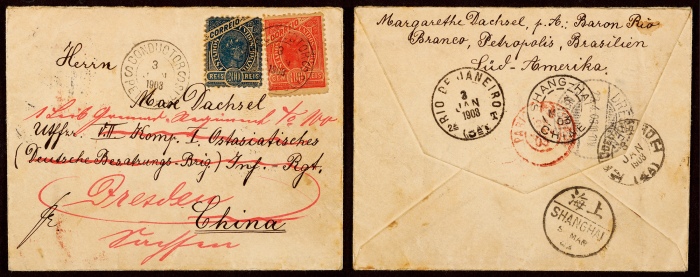 CORREIO
CORREIO
REIS
REIS
CONDUCTOR
3
1903
Herrn
Max Dachsel
1 Leib Grenad. Regiment No 100
Uffz. VII Komp. I Ostasiatisches
(Deutsche Besatzungs-Brig) Inf.-Rgt.
Dresden
China
Sachsen
Margarethe Dachsel, p. A.: Baron Rio
Branco, Petropolis, Brasilien
Süd-Amerika.
RIO DE JANEIRO
3
JAN
1903
SHANG-HAI
CHINE
03
JAN
1903
上海
SHANGHAI
MAR